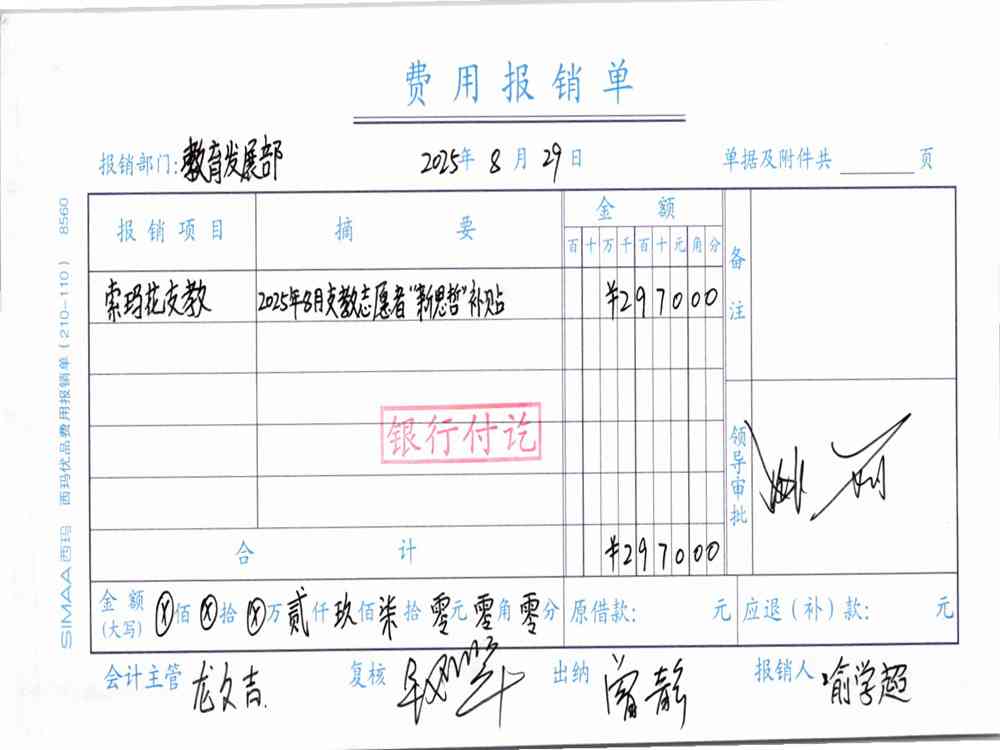 费用报销单
报销部门:教育发展部 2025年 8月 29日 单据及附件共 页
报销项目 摘要 金额 备注
百 十 万 千 百 十 元 角 分
索玛花支教 2025年8月支教志愿者"新思哲"补贴 ¥2970.00
银行付讫
领导审批
合计 ¥2970.00
金额(大写) ⊗佰⊗拾⊗万贰仟玖佰柒拾零元零角零分 原借款: 元 应退(补)款: 元
会计主管 龙文吉 复核 出纳 曾静 报销人 喻学超
SIMAA西玛 西玛优品费用报销单(210-110) 8560